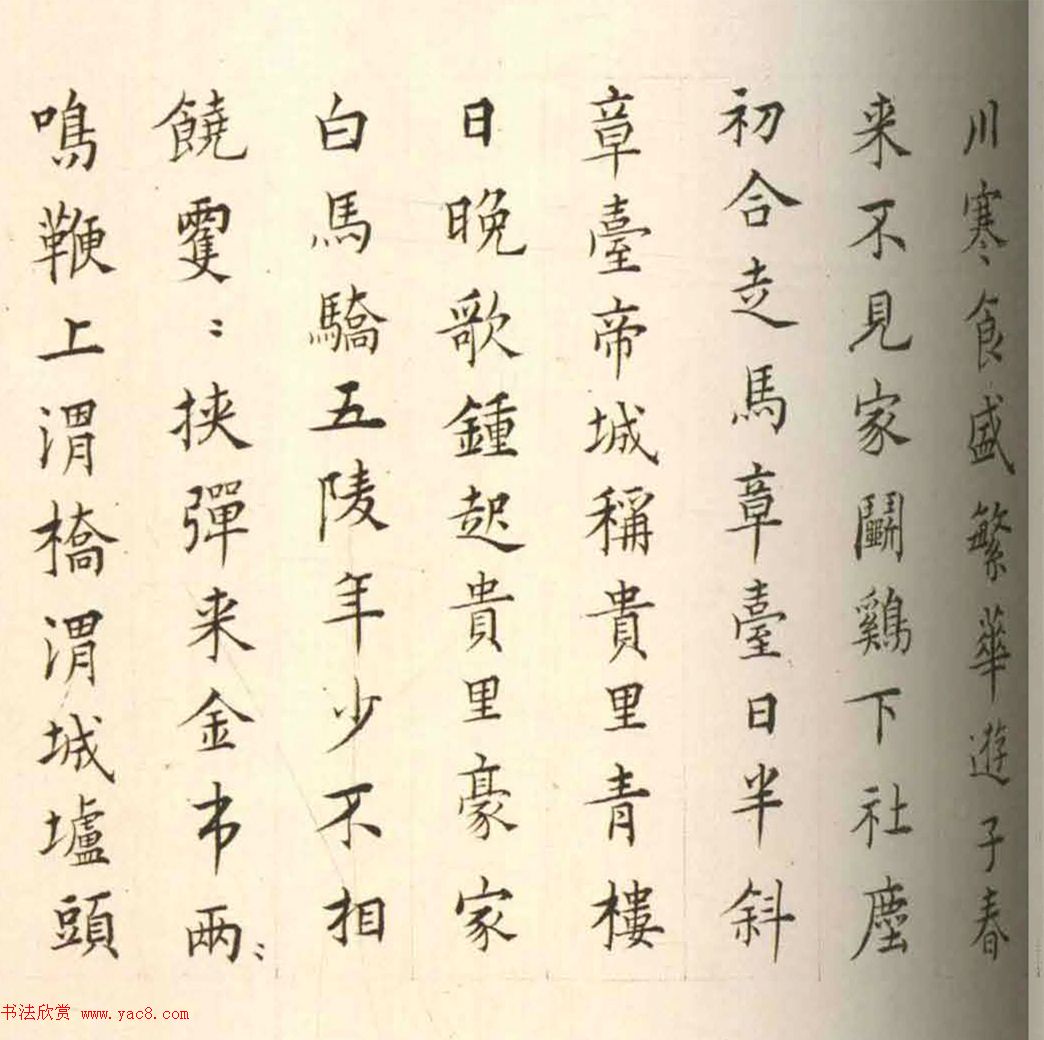 川寒食盛繁華遊子春
来不見家鬭鷄下社塵
初合走馬章臺日半斜
章臺帝城稱貴里青樓
日晚歌鍾起貴里豪家
白馬驕五陵年少不相
饒䨇〻挟彈来金市兩〻
鳴鞭上渭橋渭城壚頭
书法欣赏 www.yac8.com